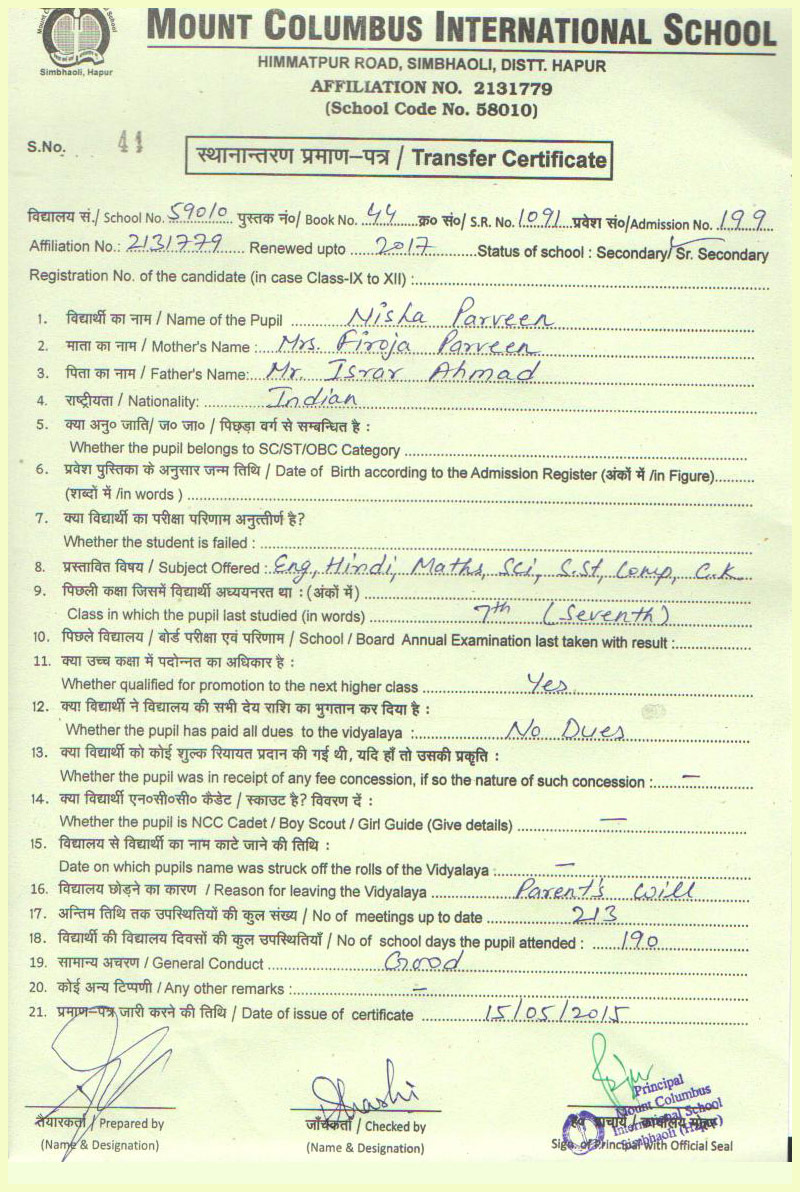 Simbhaoli, Hapur
MOUNT COLUMBUS INTERNATIONAL SCHOOL
HIMMATPUR ROAD, SIMBHAOLI, DISTT. HAPUR
AFFILIATION NO. 2131779
(School Code No. 58010)
S.No. 41
स्थानान्तरण प्रमाण–पत्र / Transfer Certificate
विद्यालय सं./ School No. 59010 पुस्तक नं०/ Book No. 44 क्र० सं०/ S.R. No. 1091 प्रवेश सं०/Admission No. 199
Affiliation No.: 2131779 Renewed upto 2017 Status of school : Secondary/ Sr. Secondary
Registration No. of the candidate (in case Class-IX to XII) :
1. विद्यार्थी का नाम / Name of the Pupil Nisha Parveen
2. माता का नाम / Mother's Name : Mrs. Firoja Parveen
3. पिता का नाम / Father's Name: Mr. Israr Ahmad
4. राष्ट्रीयता / Nationality: Indian
5. क्या अनु० जाति/ ज० जा० / पिछड़ा वर्ग से सम्बन्धित है :
Whether the pupil belongs to SC/ST/OBC Category
6. प्रवेश पुस्तिका के अनुसार जन्म तिथि / Date of Birth according to the Admission Register (अंकों में /in Figure)
(शब्दों में /in words )
7. क्या विद्यार्थी का परीक्षा परिणाम अनुत्तीर्ण है?
Whether the student is failed :
8. प्रस्तावित विषय / Subject Offered : Eng, Hindi, Maths, Sci, S.St, Comp, G.K
9. पिछली कक्षा जिसमें विद्यार्थी अध्ययनरत था : (अंकों में)
Class in which the pupil last studied (in words) 7th (Seventh)
10. पिछले विद्यालय / बोर्ड परीक्षा एवं परिणाम / School / Board Annual Examination last taken with result :
11. क्या उच्च कक्षा में पदोन्नत का अधिकार है :
Whether qualified for promotion to the next higher class Yes
12. क्या विद्यार्थी ने विद्यालय की सभी देय राशि का भुगतान कर दिया है :
Whether the pupil has paid all dues to the vidyalaya : No Dues
13. क्या विद्यार्थी को कोई शुल्क रियायत प्रदान की गई थी, यदि हाँ तो उसकी प्रकृति :
Whether the pupil was in receipt of any fee concession, if so the nature of such concession : —
14. क्या विद्यार्थी एन०सी०सी० कैडेट / स्काउट है? विवरण दें :
Whether the pupil is NCC Cadet / Boy Scout / Girl Guide (Give details) —
15. विद्यालय से विद्यार्थी का नाम काटे जाने की तिथि :
Date on which pupils name was struck off the rolls of the Vidyalaya : —
16. विद्यालय छोड़ने का कारण / Reason for leaving the Vidyalaya Parent's Will
17. अन्तिम तिथि तक उपस्थितियों की कुल संख्य / No of meetings up to date 213
18. विद्यार्थी की विद्यालय दिवसों की कुल उपस्थितियाँ / No of school days the pupil attended : 190
19. सामान्य अचरण / General Conduct Good
20. कोई अन्य टिप्पणी / Any other remarks : —
21. प्रमाण–पत्र जारी करने की तिथि / Date of issue of certificate 15/05/2015
Shashi
Principal
Mount Columbus
International School
Simbhaoli (Hapur)
तैयारकर्ता / Prepared by
जाँचकर्ता / Checked by
(Name & Designation)
(Name & Designation)
Sign. of Principal with Official Seal